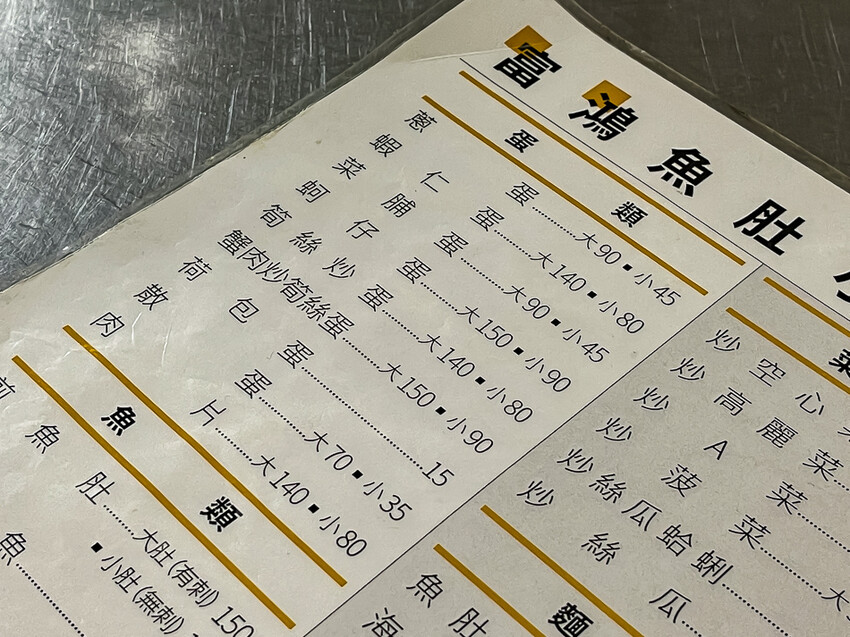 富鴻魚肚
蛋類
蔥蛋……大90▪小45
蝦仁蛋……大140▪小80
菜脯蛋……大90▪小45
蚵仔蛋……大150▪小90
筍絲炒蛋……大140▪小80
蟹肉炒筍絲蛋……大150▪小90
荷包蛋……15
散蛋……大70▪小35
肉片……大140▪小80
魚類
魚肚……大肚(有刺)150
▪小肚(無刺)
魚……
菜
炒空心
炒高麗菜……
炒A菜……
炒菠菜……大
炒絲瓜蛤蜊……
炒絲瓜……
麵
魚肚
海